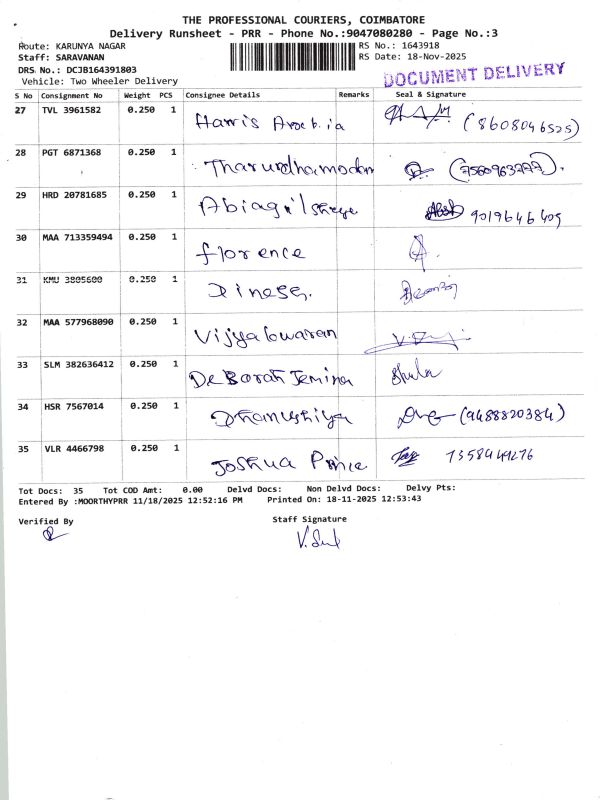 THE PROFESSIONAL COURIERS, COIMBATORE
Delivery Runsheet - PRR - Phone No.:9047080280 - Page No.:3
Route: KARUNYA NAGAR RS No.: 1643918
Staff: SARAVANAN RS Date: 18-Nov-2025
DRS No.: DCJB164391803
Vehicle: Two Wheeler Delivery DOCUMENT DELIVERY
S No Consignment No Weight PCS Consignee Details Remarks Seal & Signature
27 TVL 3961582 0.250 1 Harris (8608046525)
28 PGT 6871368 0.250 1
29 HRD 20781685 0.250 1 9019646409
30 MAA 713359494 0.250 1 florence
31 KMU 3805600 0.250 1 Dinesh.
32 MAA 577968090 0.250 1
33 SLM 382636412 0.250 1 DeBorah Jemima
34 HSR 7567014 0.250 1 Dhanushiya (9488820384)
35 VLR 4466798 0.250 1 Joshua Prince
Tot Docs: 35 Tot COD Amt: 0.00 Delvd Docs: Non Delvd Docs: Delvy Pts:
Entered By :MOORTHYPRR 11/18/2025 12:52:16 PM Printed On: 18-11-2025 12:53:43
Verified By Staff Signature